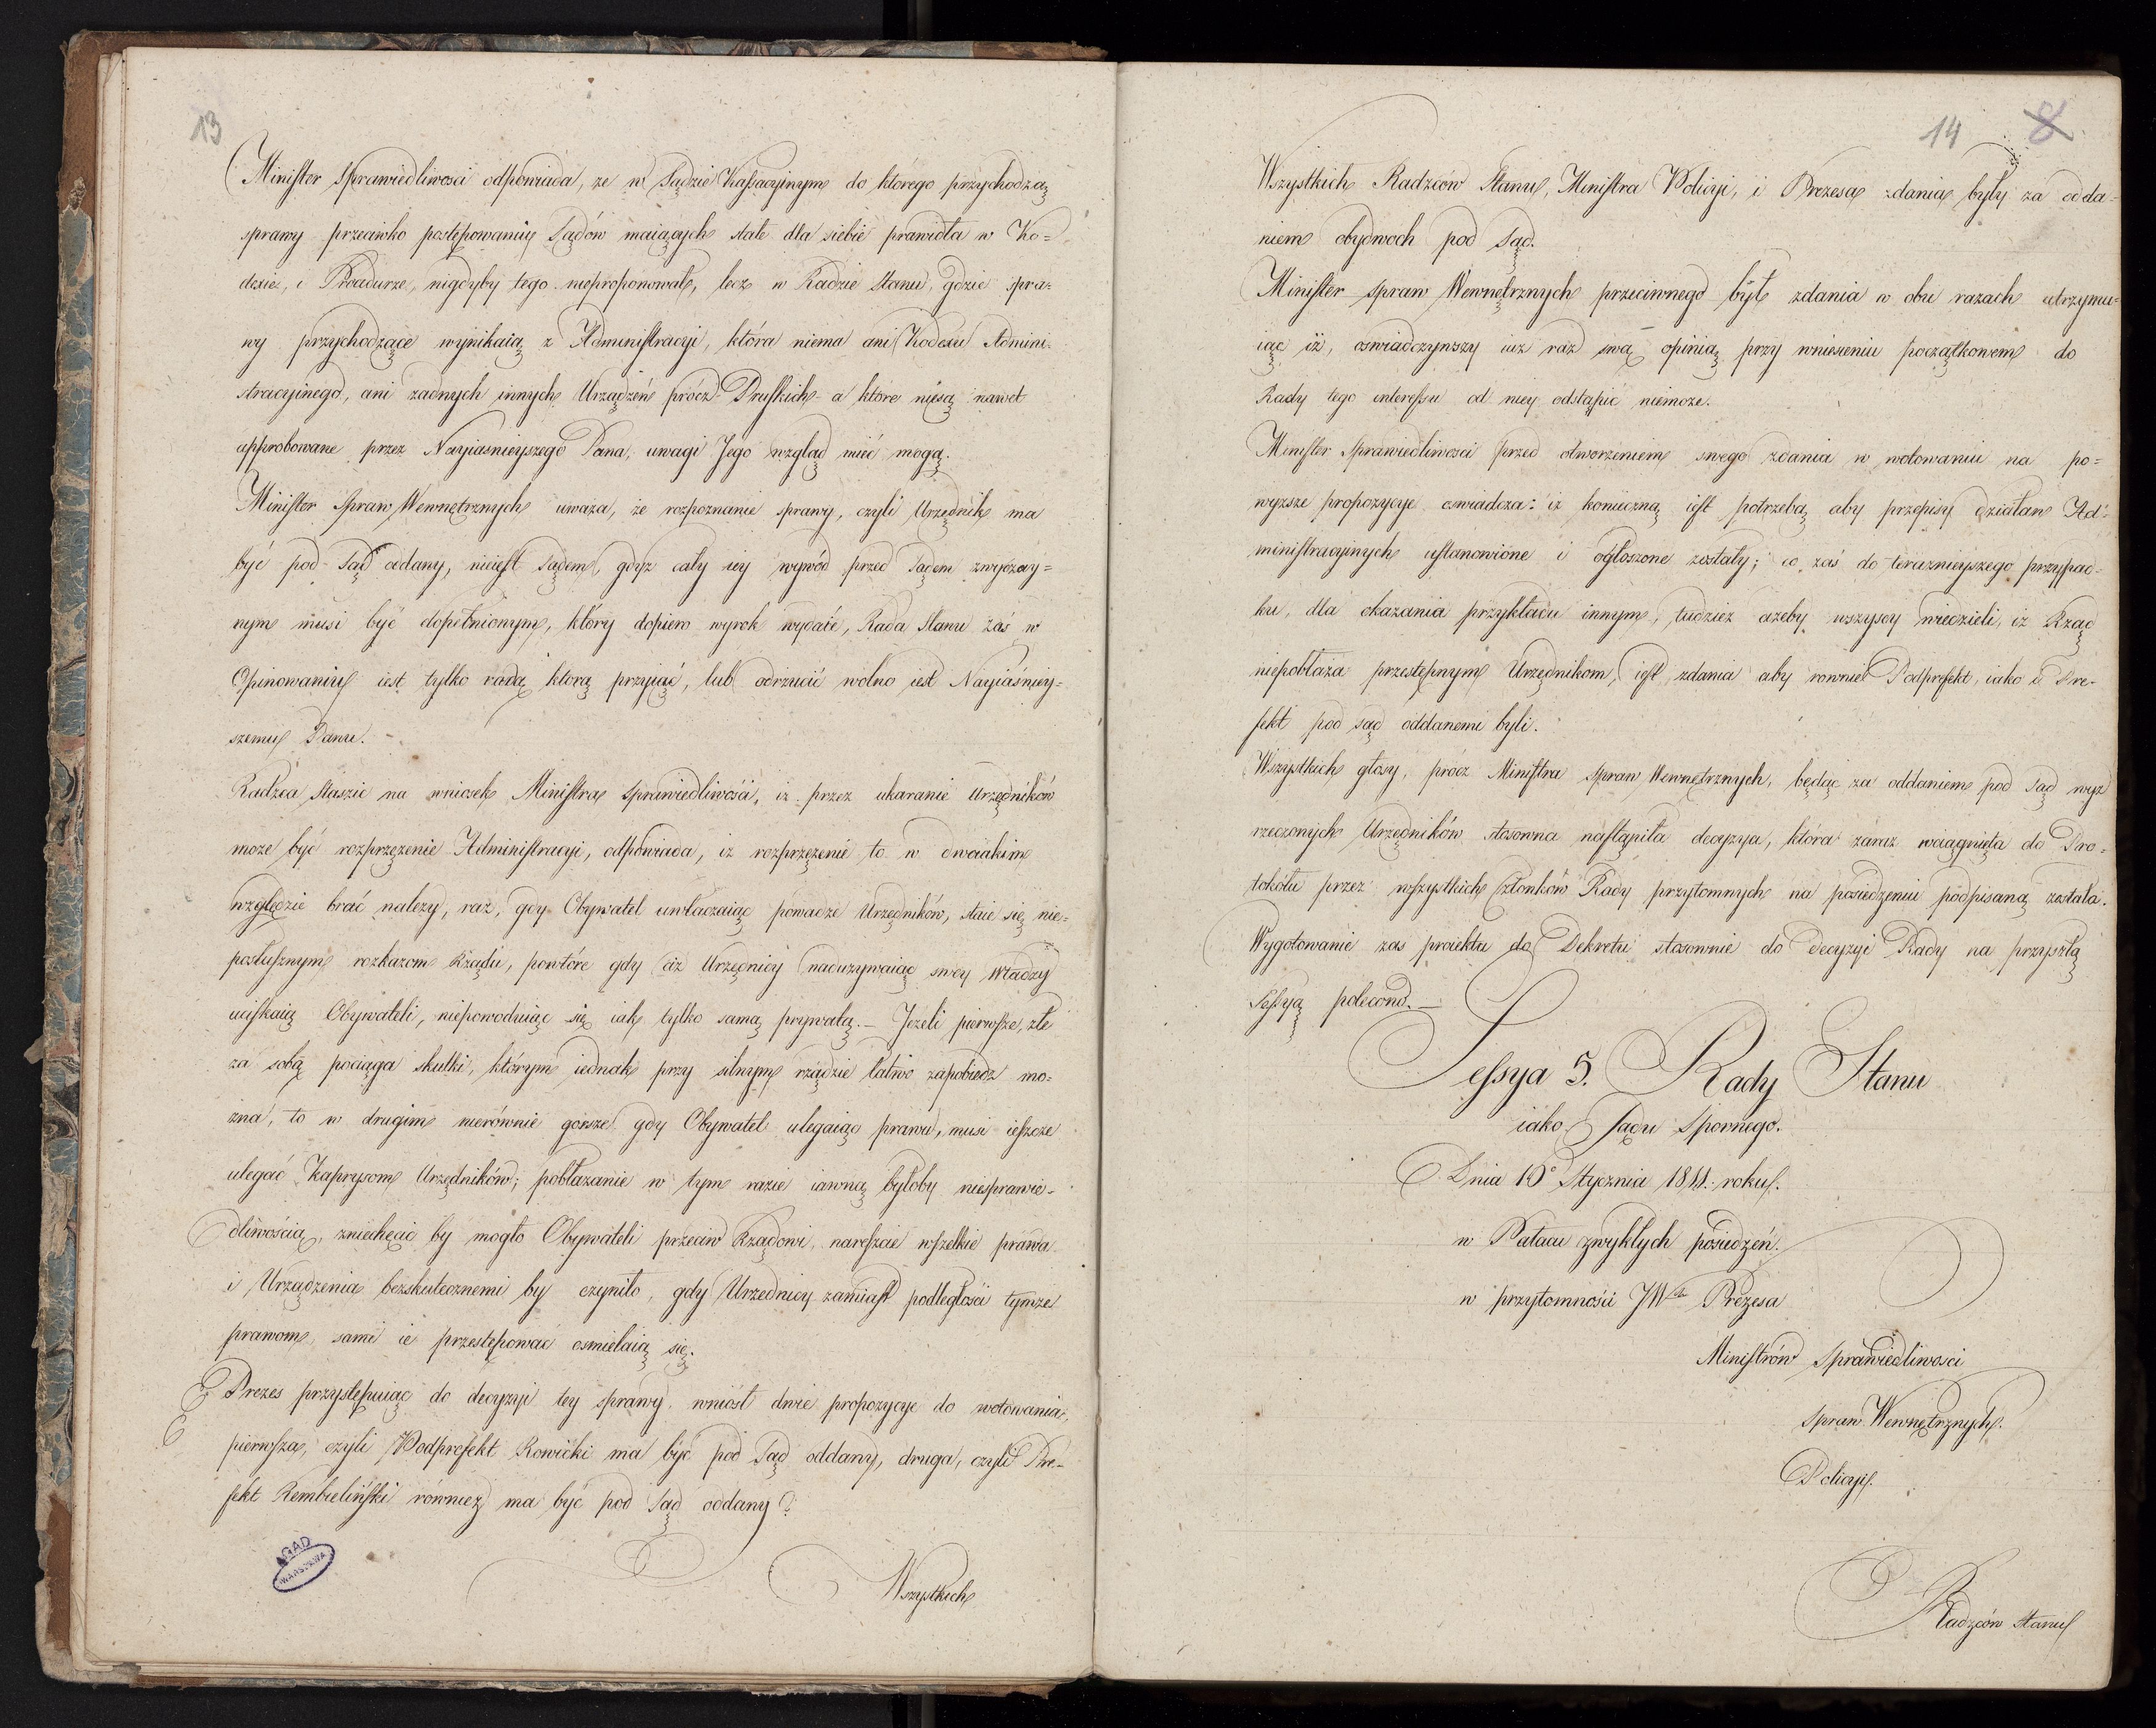 13
Minister Sprawiedliwosci odpowiada, ze w Sądzie Kassacyinym do ktorego przychodzą
sprawy przeciwko postępowaniu Sądów maiących stałe dla siebie prawidła w Ko=
dexie, i Proadurze, nigdyby tego nieproponował, lecz w Radzie Stanu, gdzie spra-
wy przychodzące wynikaią z Administracyi, która niema ani Kodexu Admini-
stracyinego, ani zadnych innych Urządzeń prócz Pruskich a które niesą nawet
approbowane przez Nayiasnieyszego Pana, uwagi Jego wzgląd mieć mogą.
Minister Spraw Wewnętrznych uwaza, że rozpoznanie sprawy, czyli Urzędnik ma
być pod Sąd oddany, nieiest Sądem, gdyz cały iey wywód przed Sądem zwyczay=
nym musi być dopełnionym, który dopiero wyrok wydaie, Rada Stanu zaś w
Opinowaniu iest tylko radą którą przyiąć, lub odrzucić wolno iest Nayiaśniey-
szemu Panu.
Radzca Staszic na wniosek Ministra Sprawiedliwości, iz przez ukaranie Urzędników
moze być rozprzęzenie Administracyi, odpowiada, iz rozprzęzenie to w dwoiakim
względzie brać nalezy, raz, gdy Obywatel uwłaczaiąc powadze Urzędników, staie się nie=
posłusznym rozkazom Rządu, powtóre gdy ciz Urzędnicy naduzywaiąc swey władzy
uciskaią Obywateli, niepowoduiąc się iak tylko samą prywatą. — Jezeli pierwsze, złe
za sobą pociąga skutki, którym iednak przy silnym rządzie łatwo zapobiedz mo=
zna, to w drugim nierównie gorsze gdy Obywatel ulegaiąc prawu, musi ieszcze
ulegać Kaprysom Urzędników; pobłazanie w tym razie iawną byłoby niesprawie-
dliwością, zniechęcić by mogło Obywateli przeciw Rządowi, nareszcie wszelkie prawa
i Urządzenia bezskutecznemi by czyniło, gdy Urzednicy zamiast podległości tymze
prawom, sami ie przestępować osmielaią się.
Prezes przystępuiąc do decyzyi tey sprawy, wniósł dwie propozycye do wotowania,
pierwsza, czyli Podprefekt Rowicki ma być pod Sąd oddany, druga, czyli Pre-
fekt Rembieliński równiez ma być pod Sąd oddany?
Wszystkich
AGAD
WARSZAWA
14 8
Wszystkich Radzców Stanu, Ministra Policyi, i Prezesa zdania były za odda-
niem obydwoch pod Sąd.
Minister Spraw Wewnętrznych przeciwnego był zdania w obu razach utrzymu=
iąc iż, oswiadczywszy iuz raz swą opinią przy wniesieniu początkowem do
Rady tego interessu od niey odstąpić niemoze.
Minister Sprawiedliwosci przed otworzeniem swego zdania w wotowaniu na po=
wyzsze propozycye oswiadcza: iz konieczną iest potrzebą aby przepisy działań Ad=
ministracyinych ustanowione i ogłoszone zostały; co zaś do teraznieyszego przypad=
ku, dla okazania przykładu innym, tudzież azeby wszyscy wiedzieli, iz Rząd
niepobłaża przestępnym Urzędnikom, iest zdania aby rownie Podprefekt, iako i Pre-
fekt pod sąd oddanemi byli.
Wszystkich głosy, prócz Ministra Spraw Wewnętrznych, będąc za oddaniem pod Sąd wyz
rzeczonych Urzędników stosowna nastąpiła decyzya, która zaraz wciągnięta do Pro=
tokółu przez wszystkich Członków Rady przytomnych na posiedzeniu podpisaną została.
Wygotowanie zas proiektu do Dekretu stosownie do decyzyi Rady na przyszłą
Sessyą polecono. —
Sessya 5. Rady Stanu
iako Sądu Spornego.
Dnia 10° Stycznia 1811. roku.
w Pałacu zwykłych posiedzeń.
w przytomności JW Prezesa
Ministrów Sprawiedliwosci
Spraw Wewnętrznych.
Policyi.
Radzców Stanu